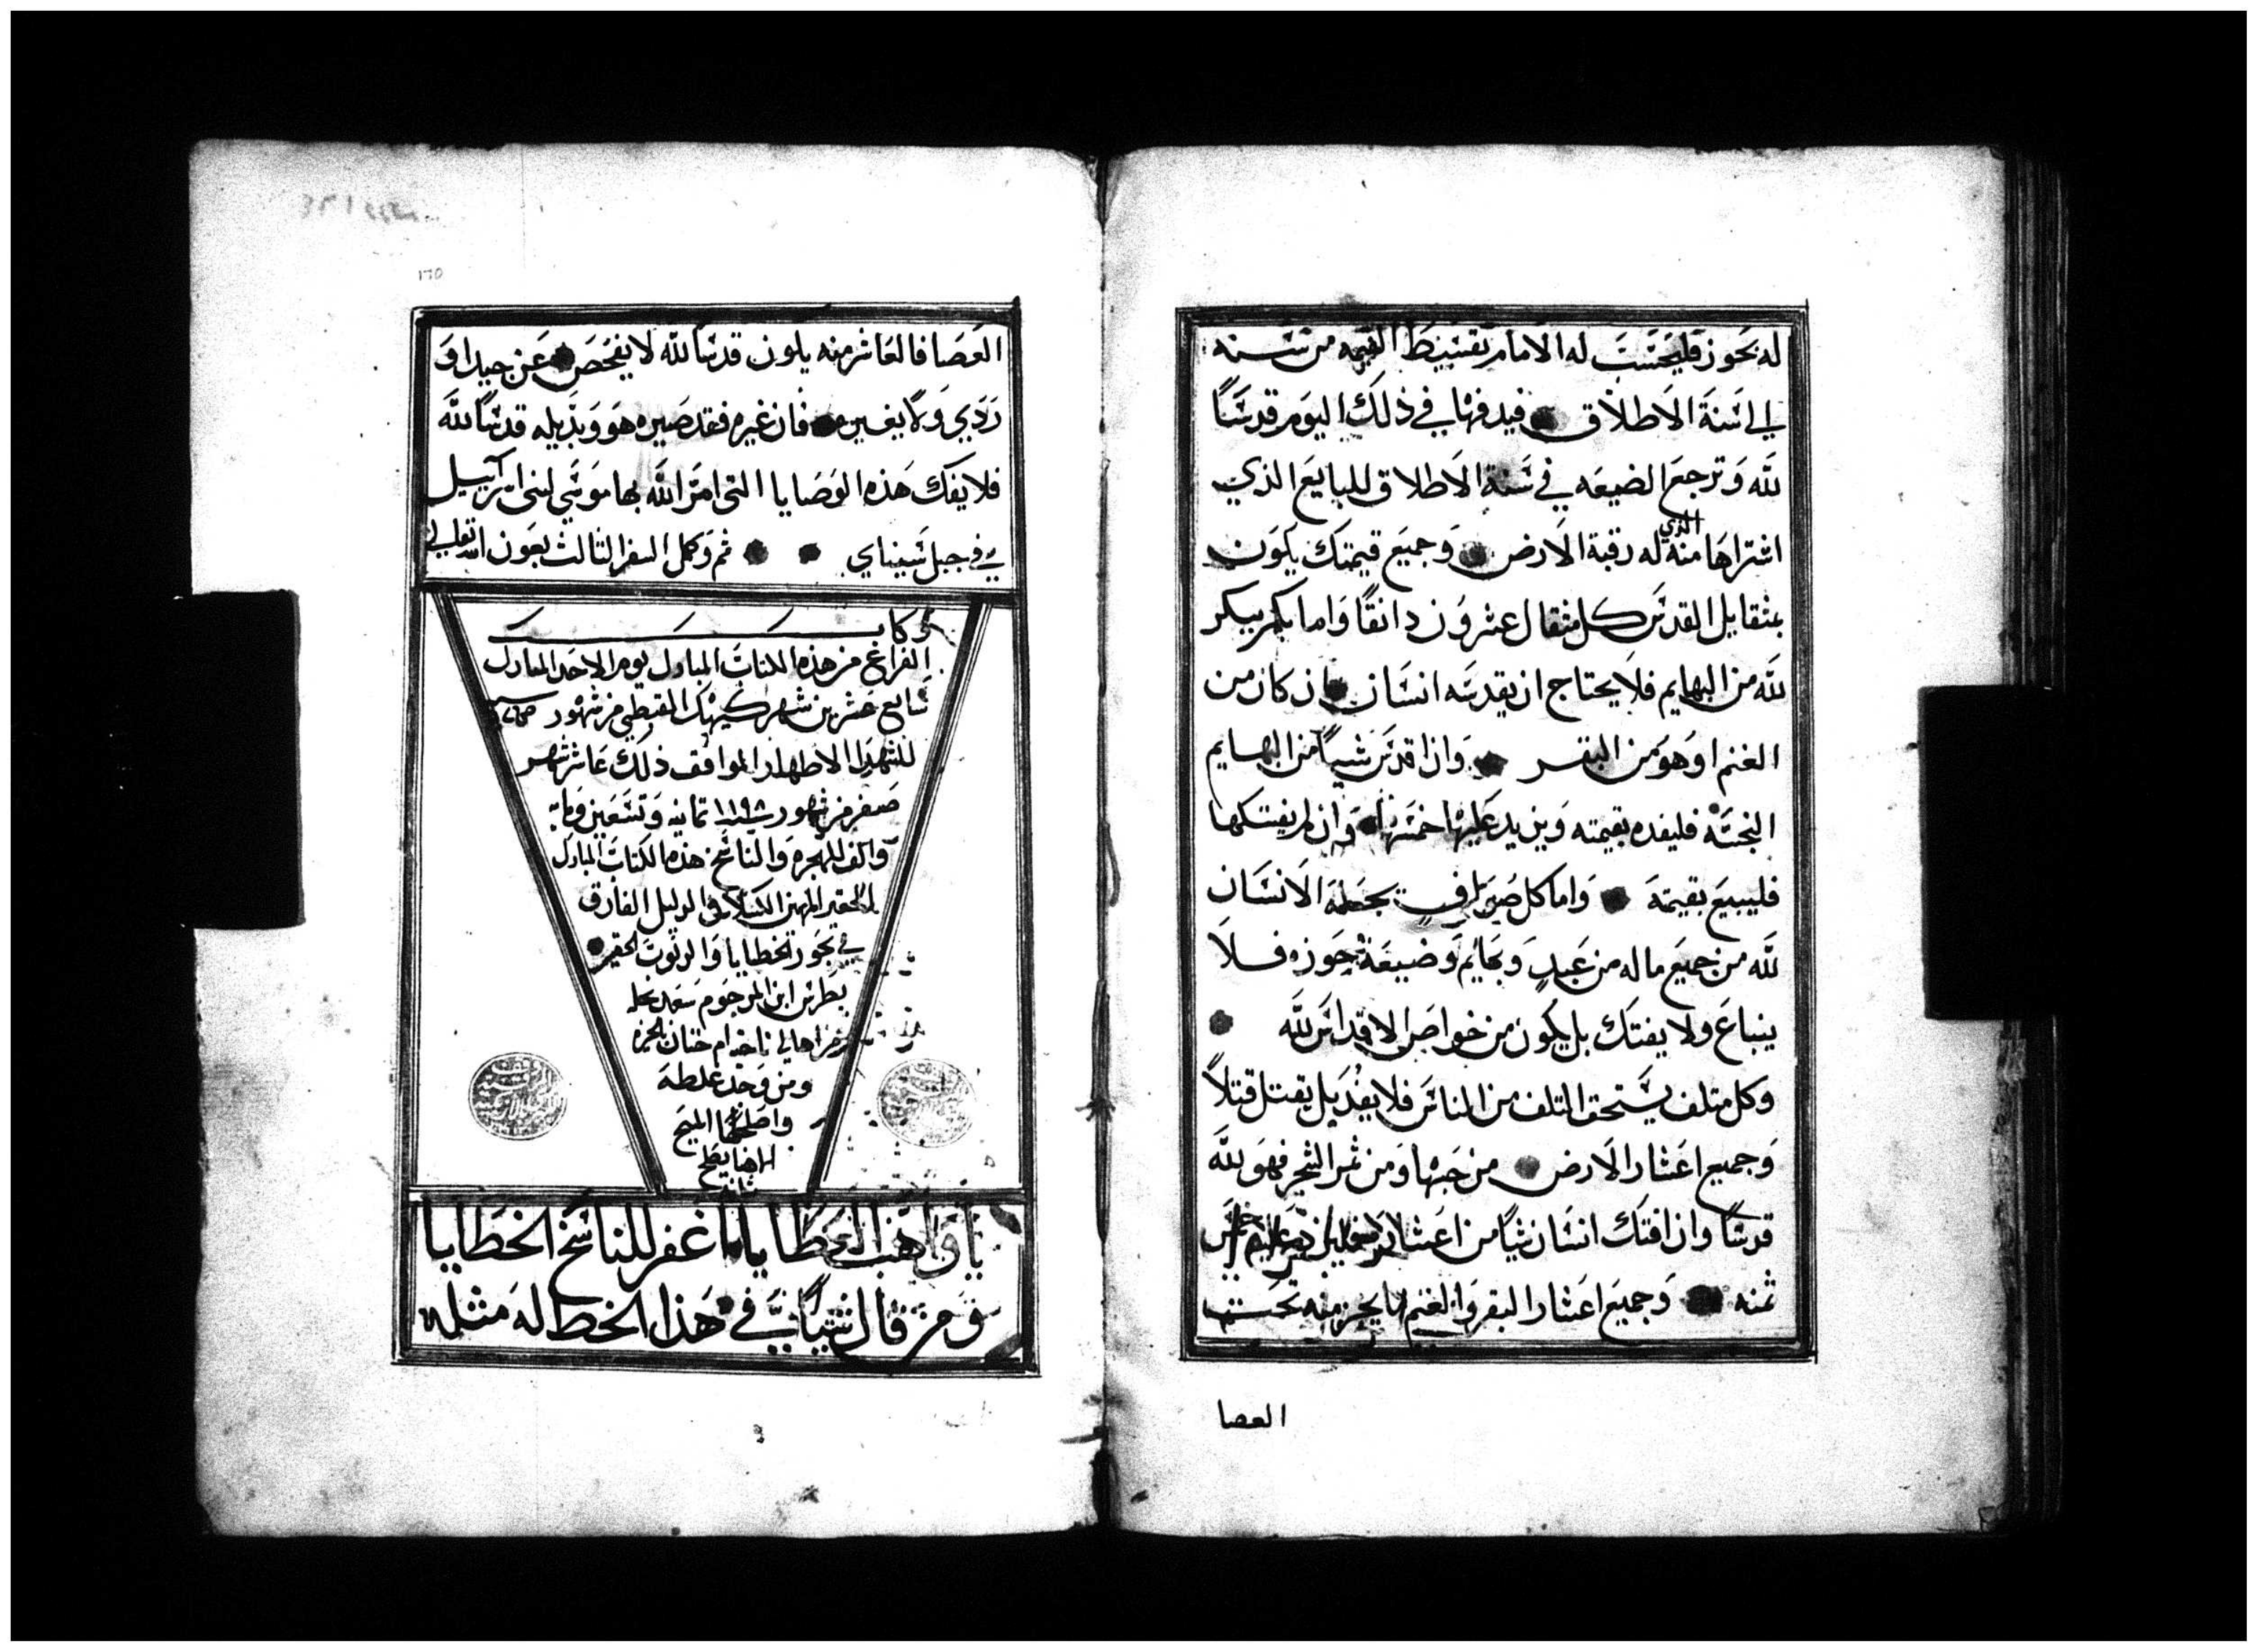 له بحوز فليحتسب له الامام تقسيط القيمه من سنه
الي سنة الاطلاق فيدفها في ذلك اليوم قدسًا
لله وترجع الضيعه في سنة الاطلاق للبايع الذي
اشتراها منه الذي له رقبة الارض وجميع قيمتك يكون
بمثقايل القدس كل مثقال عشرون دانقًا واما بكر يبكر
لله من البهايم فلا يحتاج ان يقدسه انسان ان كان من
الغنم او هو من البقر وان قدس شيًا من البهايم
النجسه فليفده بقيمته ويزيد عليها خمسها وان لم يفتكها
فليبيع بقيمته واما كل صوافي يجعله الانسان
لله من جميع ماله من عبيد وبهايم وضيعة حوزه فلا
ينباع ولا يفتك بل يكون من خواص الاقداس لله
وكل متلف يستحق التلف من الناس فلا يفدى بل يقتل قتلاً
وجميع اعشار الارض من حبها ومن ثمر الشجر فهو لله
قدسًا وان افتك انسان شيًا من اعشاره خمس
ثمنه وجميع اعشار البقر والغنم ما يجز منه تحت
العصا
١٦٥
العصا فالعاشر منه يكون قدسًا لله لا يفحص عن جيد او
ردي ولا يغيره فان غيره فقد صيره هو وبديله قدسًا لله
فلا يفك هذه الوصايا التي امر الله بها موسي لبني اسراييل
في جبل سيناي تم وكمل السفر الثالث بعون الله تعالي
وكان
الفراغ من هذه الكتاب المبارك يوم الاحد المبارك
سابع عشرين شهر كيهك القبطي من شهور
للشهدا الاطهار الموافق ذلك عاشر شهر
صفر من شهور سنة ١١٩٨ تمانيه وتسعين ومايه
والف للهجره والناسخ هذه الكتاب المبارك
الحقير المهين الكسلان الدليل الغارق
في بحور الخطايا والدنوب الحقير
بطرس ابن المرحوم سعد
من اهالي
ومن وجد غلطه
واصلحها المسيح
يا واهب العطايا اغفر للناسخ الخطايا
ومن قال شيًا في هذا الخط له مثله